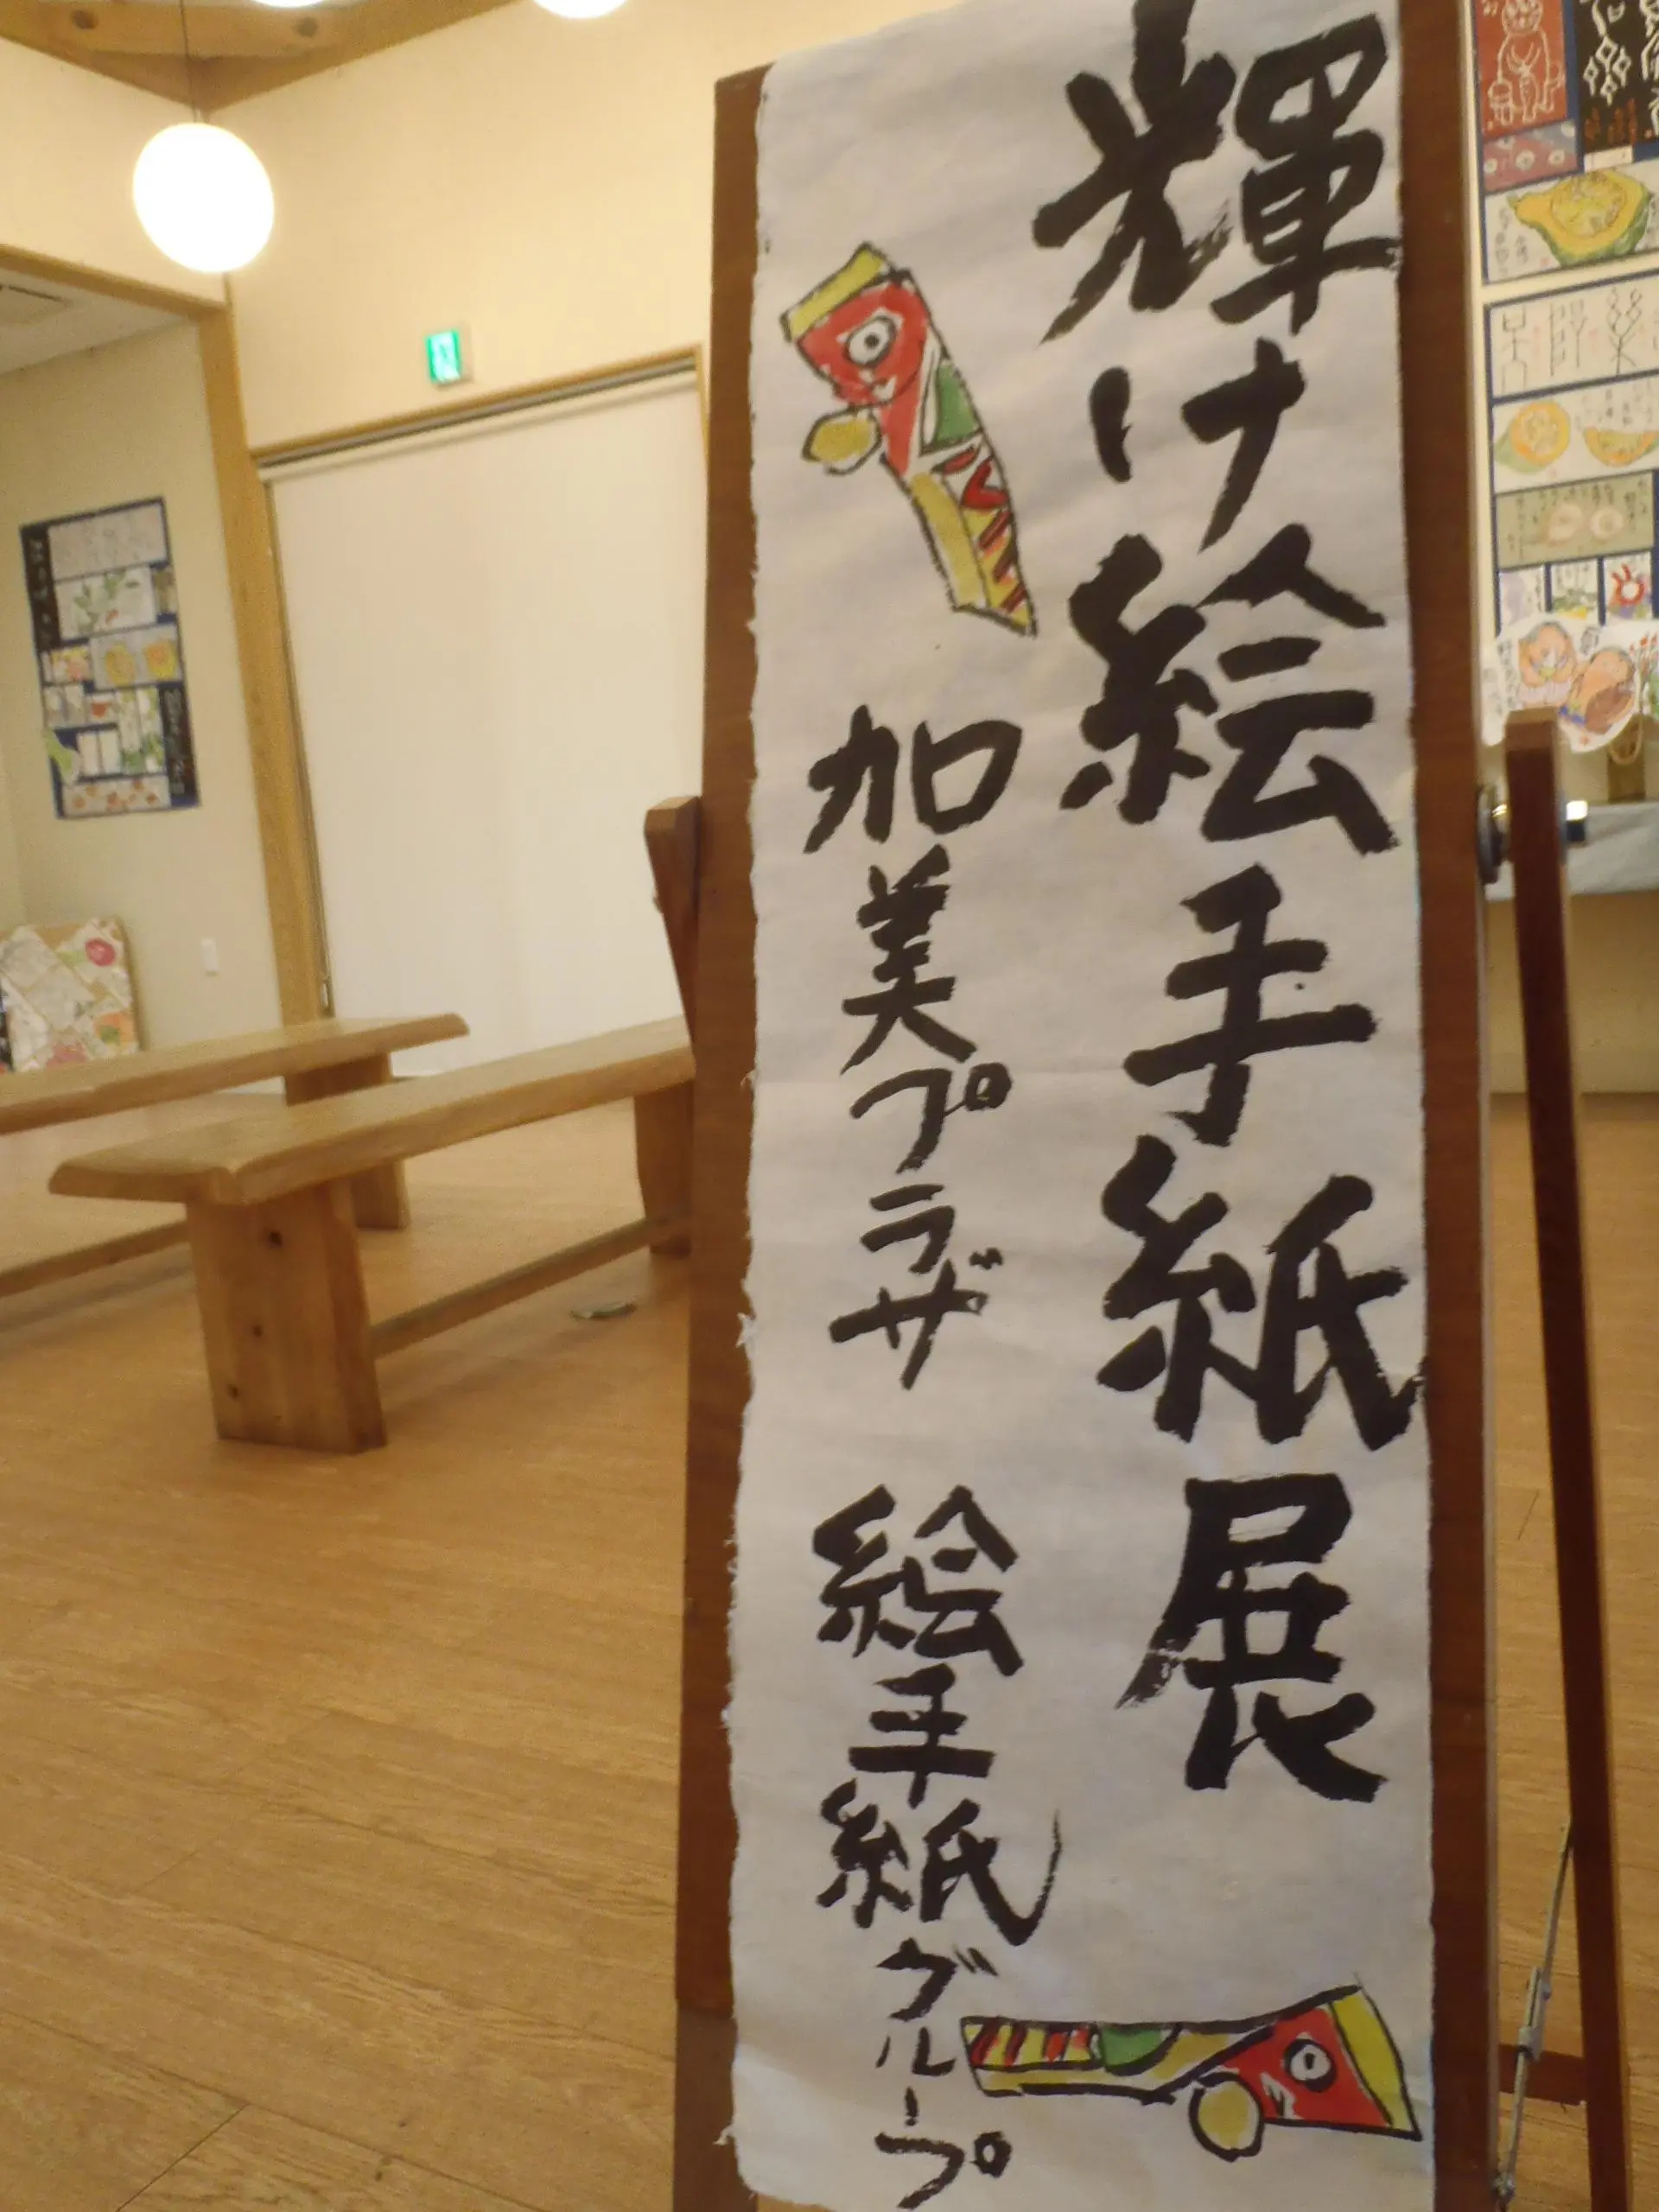 輝け絵手紙展
加美プラザ 絵手紙グループ